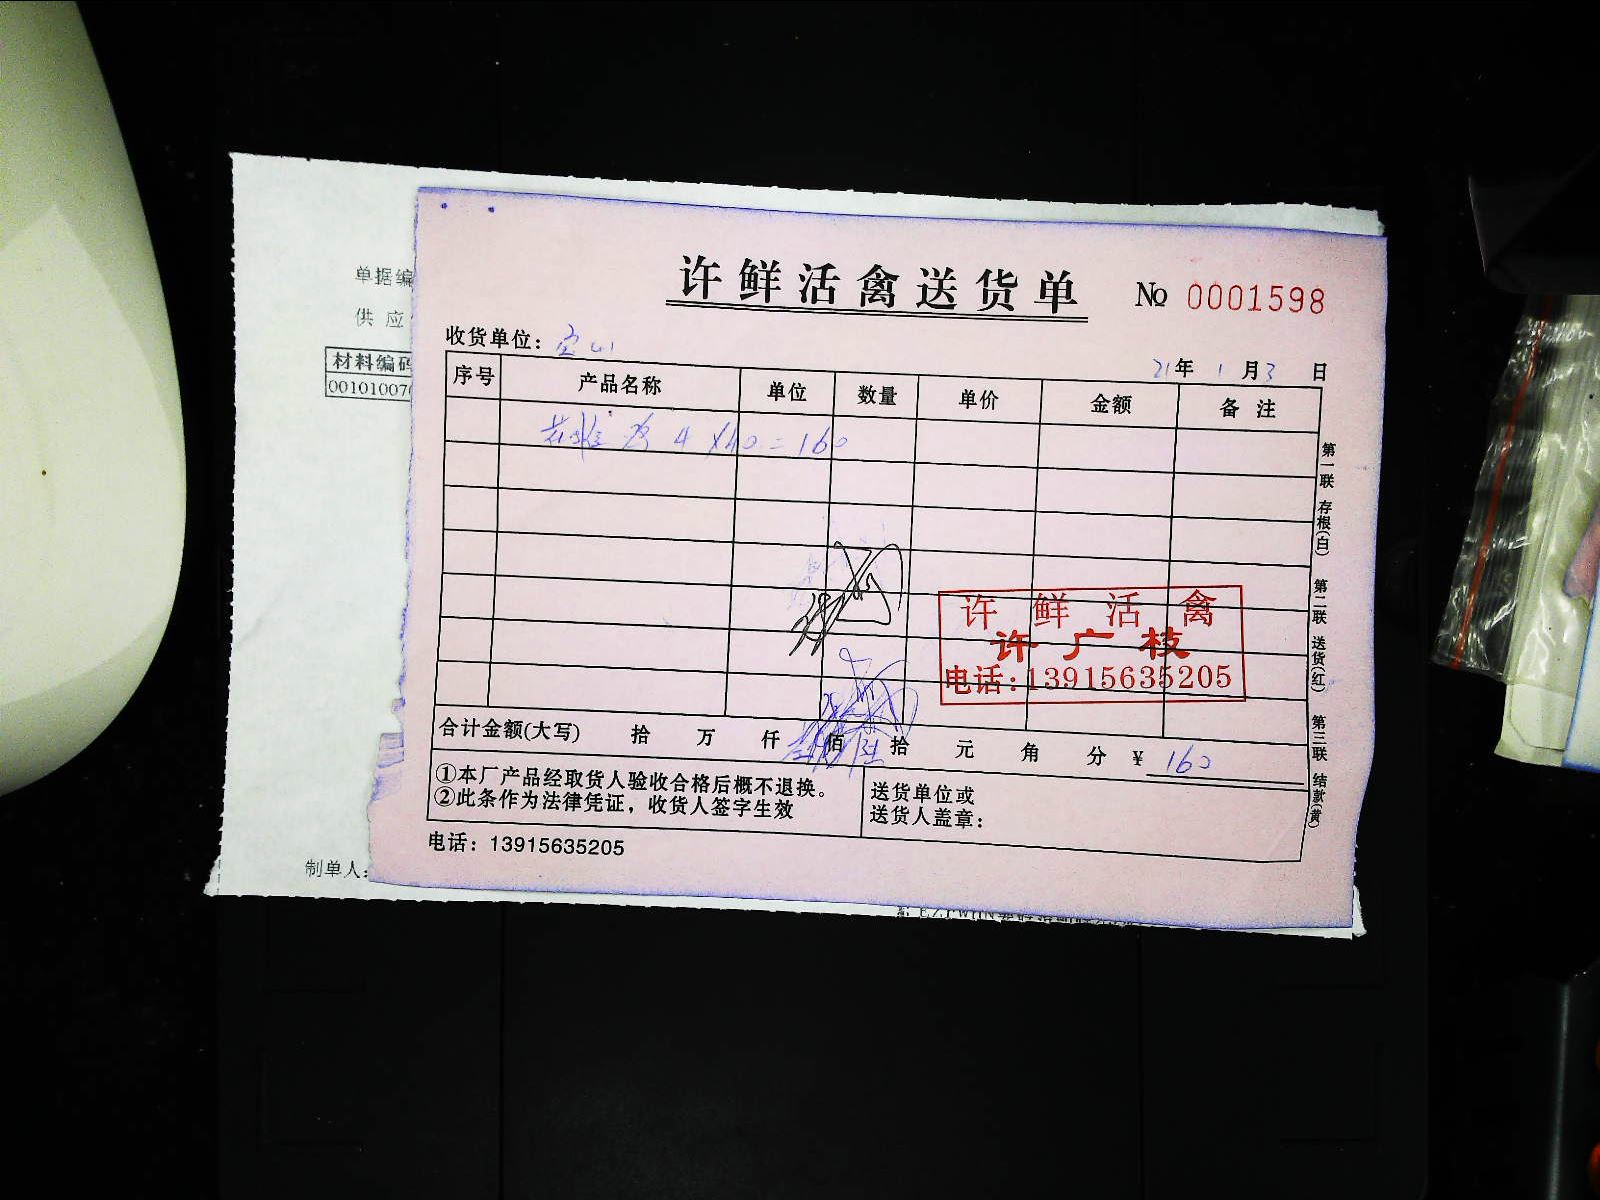 许鲜活禽送货单 No 0001598
单据编
供应
收货单位：
21年 1 月 3 日
材料编码
00101007
序号 产品名称 单位 数量 单价 金额 备注
4 × 40 = 160
第一联 存根(白) 第二联 送货(红) 第三联 结款(黄)
许鲜活禽
许广枝
电话：13915635205
合计金额(大写) 拾 万 仟 佰 拾 元 角 分 ¥ 160
①本厂产品经取货人验收合格后概不退换。
②此条作为法律凭证，收货人签字生效
送货单位或
送货人盖章：
电话：13915635205
制单人：